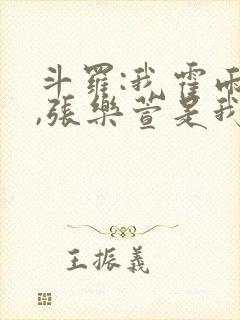 斗羅:我霍雨
,張樂萱是我
王振義